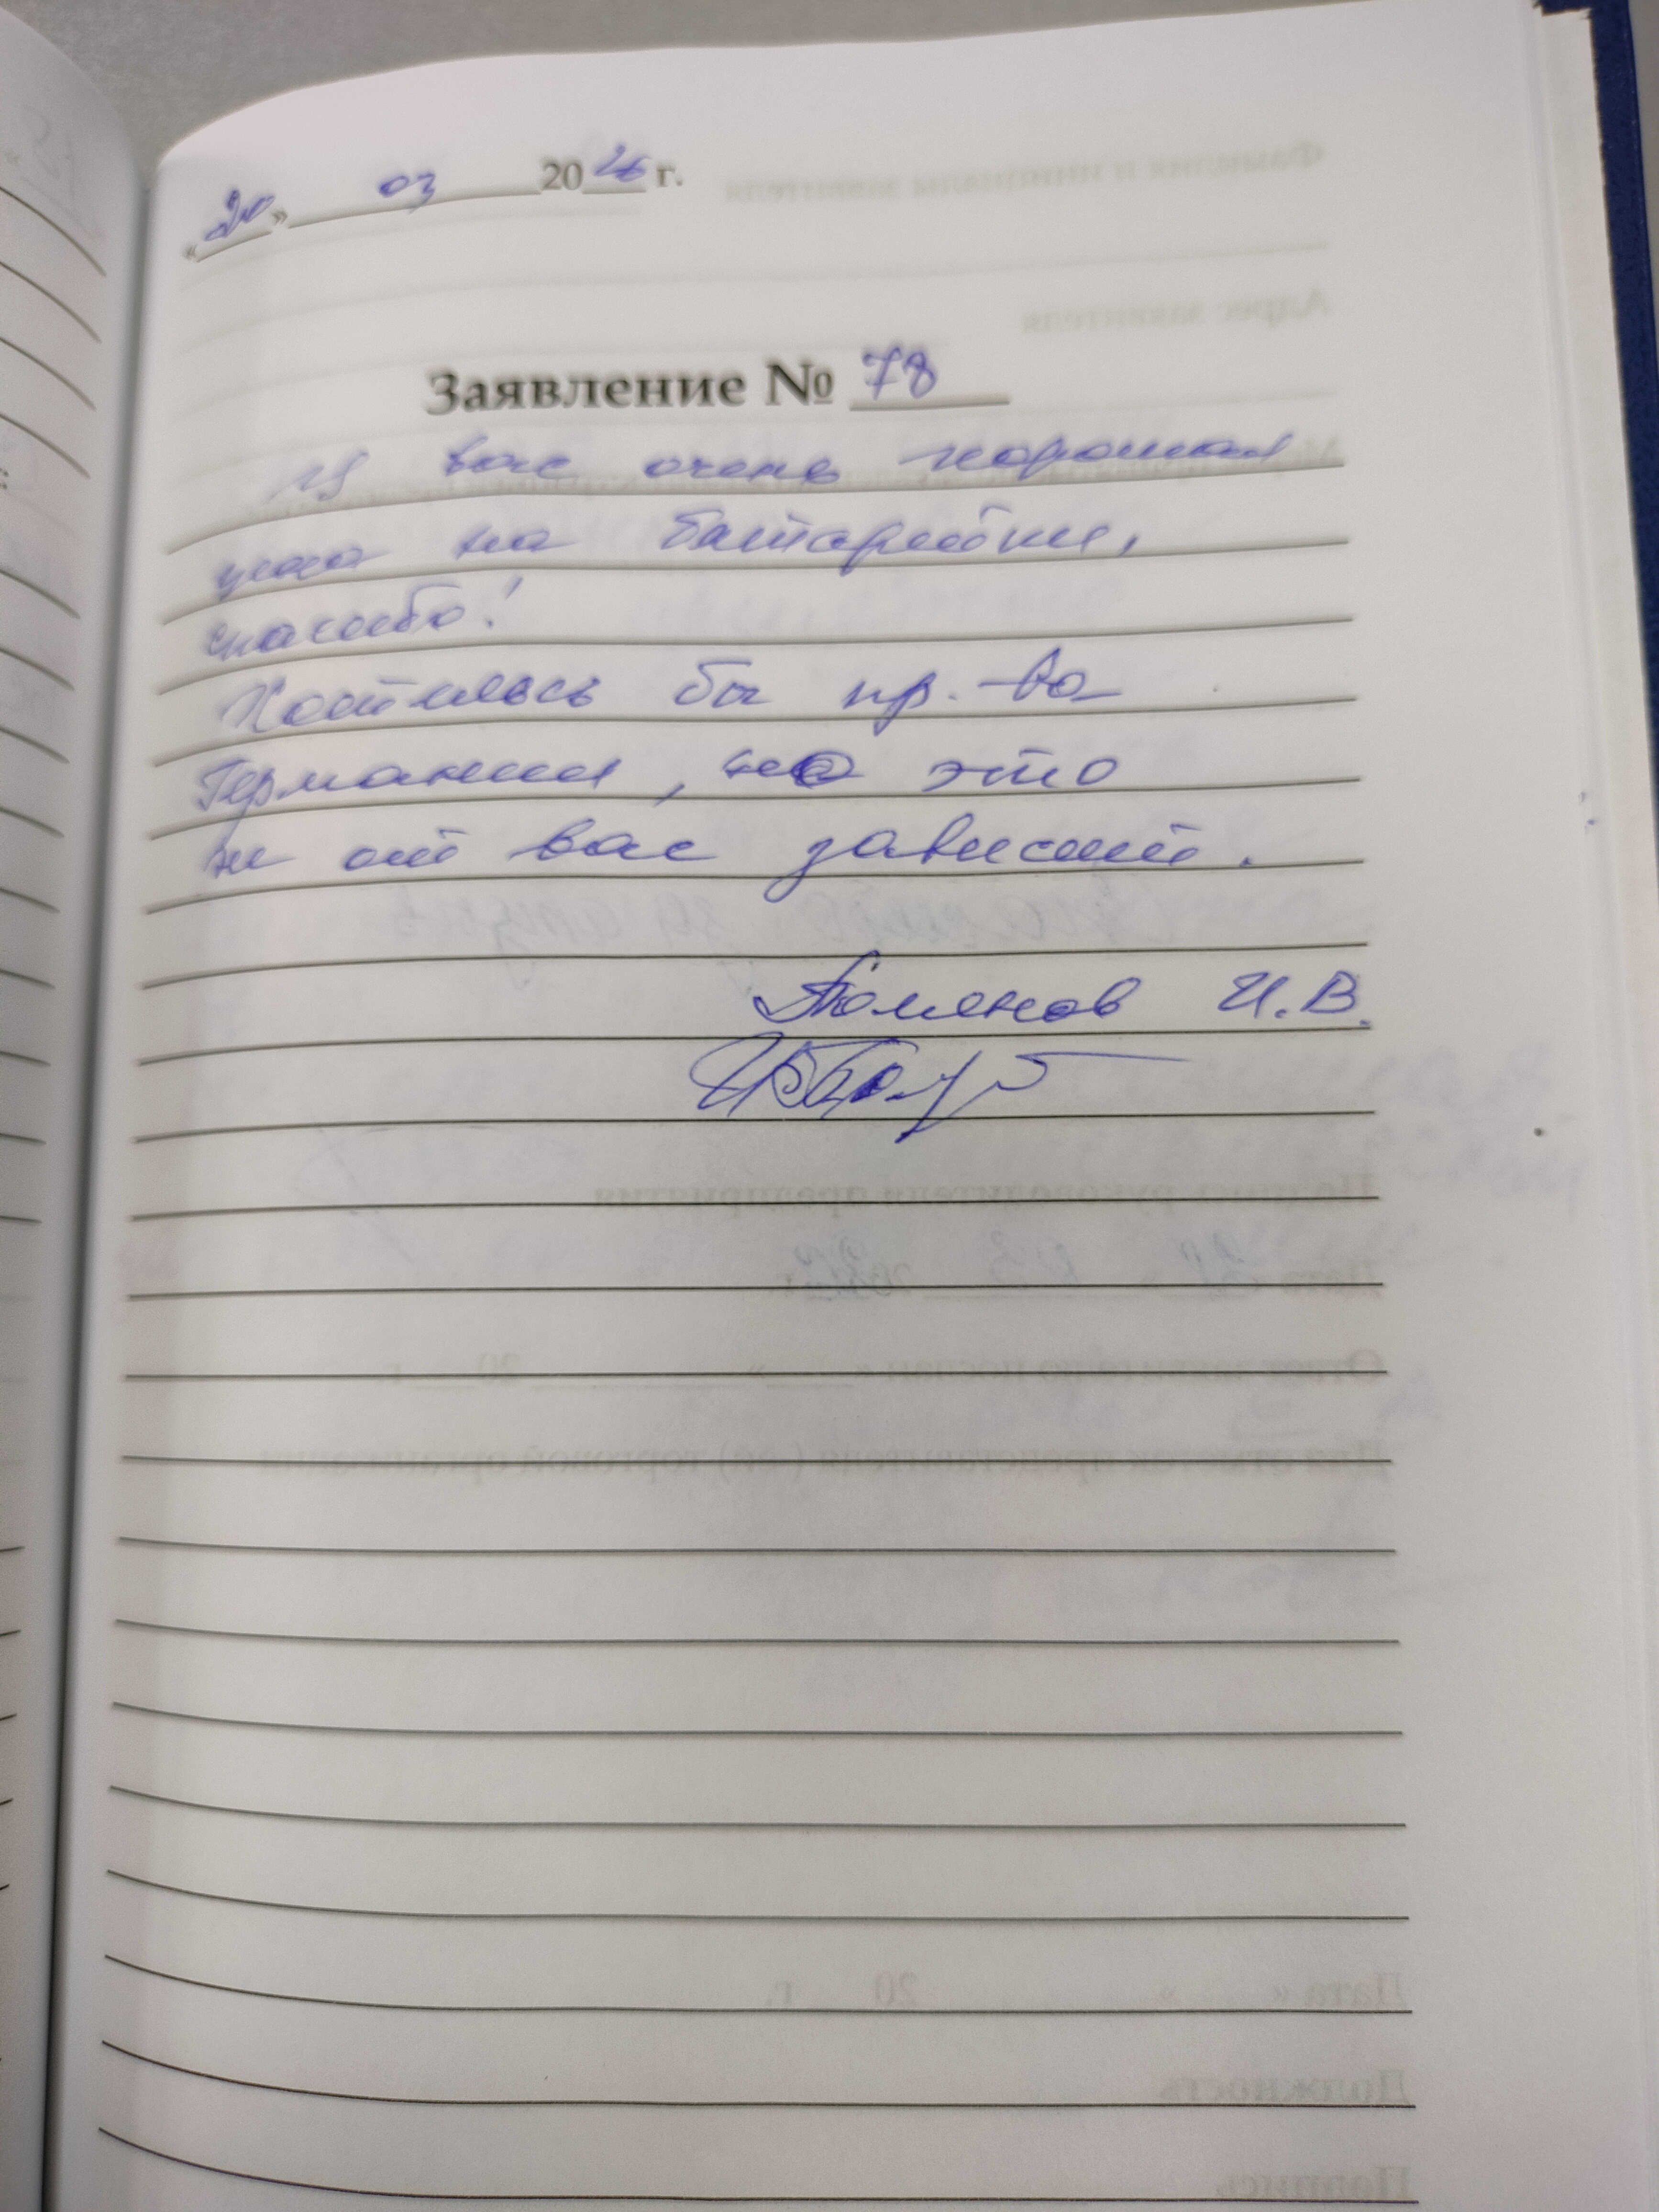 «20» 03 2026 г.
Заявление № 78
У вас очень хорошая
цена на батарейки,
спасибо!
Хотелось бы пр.-ва
Германии, но это
не от вас зависит.
Тюменов И.В.